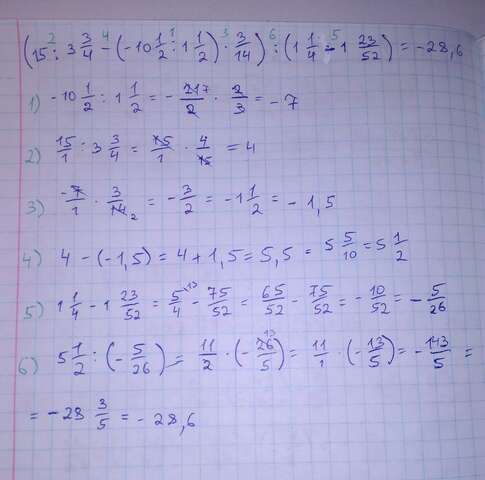 (15 : 3 3/4 - (-10 1/2 : 1 1/2) · 3/14) : (1 1/4 - 1 23/52) = -28,6
1) -10 1/2 : 1 1/2 = - 21/2 · 2/3 = -7
2) 15/1 : 3 3/4 = 15/1 · 4/15 = 4
3) -7/1 · 3/14 2 = - 3/2 = -1 1/2 = -1,5
4) 4 - (-1,5) = 4 + 1,5 = 5,5 = 5 5/10 = 5 1/2
5) 1 1/4 - 1 23/52 = 5/4 ˣ¹³ - 75/52 = 65/52 - 75/52 = - 10/52 = - 5/26
6) 5 1/2 : (- 5/26) = 11/2 · (- 26/5) 13 = 11/1 · (- 13/5) = - 143/5 =
= -28 3/5 = -28,6